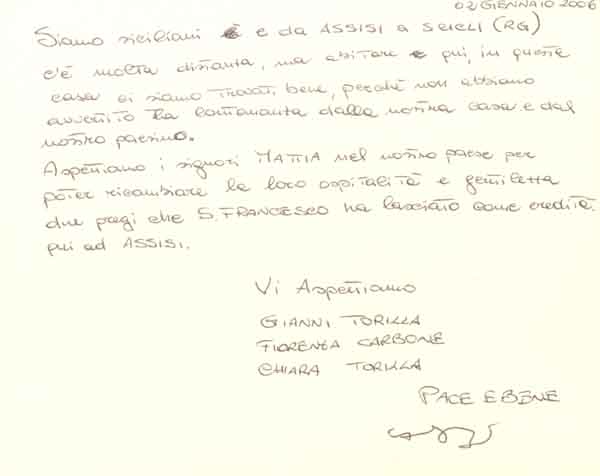 02 GENNAIO 2006
Siamo siciliani e e da ASSISI a SCICLI (RG)
c'è molta distanza, ma abitare qui, in queste
case ci siamo trovati bene, perchè non abbiamo
avvertito la lontananza dalla nostra casa e dal
nostro paesino.
Aspettiamo i signori MATTIA nel nostro paese per
poter ricambiare la loro ospitalità e gentilezza
due pregi che S. FRANCESCO ha lasciato come eredità
qui ad ASSISI.
Vi Aspettiamo
GIANNI TORILLA
FIORENZA CARBONE
CHIARA TORILLA
PACE E BENE